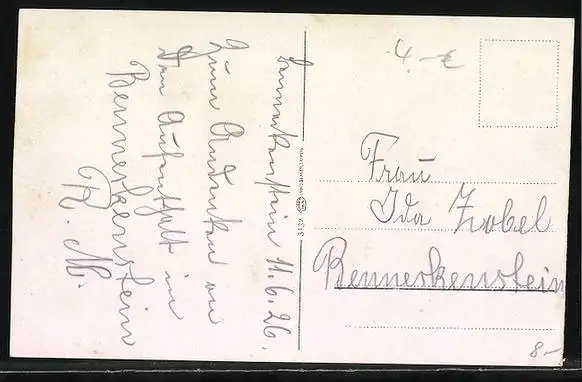 Bennerkenstein 11.6.26.
Zum Andenken an
den Aufenthalt in
Bennerkenstein
R. M.
3132
4.-€
Frau
Ida Zobel
Bennerkenstein
8.-